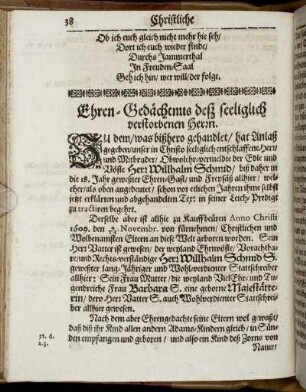 38 Christliche
Ob ich euch gleich nicht mehr hie seh/
Dort ich euch wieder finde/
Durchs Jammerthal
In Freuden-Saal
Geh ich hin/ wer will/ der folge.
Ehren-Gedächtnus deß seeliglich
verstorbenen Herrn.
ZU dem/ was bißhero gehandlet/ hat Anlaß
gegeben/ unser in Christo seeliglich entschlaffene Herr
und Mitbruder/ Obwohlehrvermeldte der Edle und
Vöste Herr Willhalm Schmid/ biß daher in
die 18. Jahr gewester Ehren-Gast/ und Freysäß allhier/ wel-
cher/ als oben angedeutet/ schon vor etlichen Jahren ihme selbst
jetzt erklärten und abgehandelten Text in seiner Leichs Predigt
zu tractiren begehrt.
Derselbe aber ist allhie zu Kauffbeüren Anno Christi
1609. den Novembr. von fürnehmen/ Christlichen und
Wolbenamsten Eltern an diese Welt geboren worden. Sein
Herr Vatter ist gewesen/ der weyland Ehrnvöste/ Vorachtba-
re/ und Rechts-verständige Herr Willhalm Schmid S.
gewester lang-Jähriger und Wohlverdienter Stattschreiber
allhier: Sein Frau Mutter/ die weyland Viel Ehr- und Tu-
gendreiche Frau Barbara S. eine geborne Majestätte-
rin/ dero Herr Vatter S. auch Wohlverdienter Stattschrei-
ber allhier gewesen.
Nach dem aber Ehrengedachte seine Eltern wol gewußt/
daß diß ihr Kind allen andern Adams-Kindern gleich/ in Sün-
den empfangen und geboren/ und also ein Kind deß Zorns von
Natur/